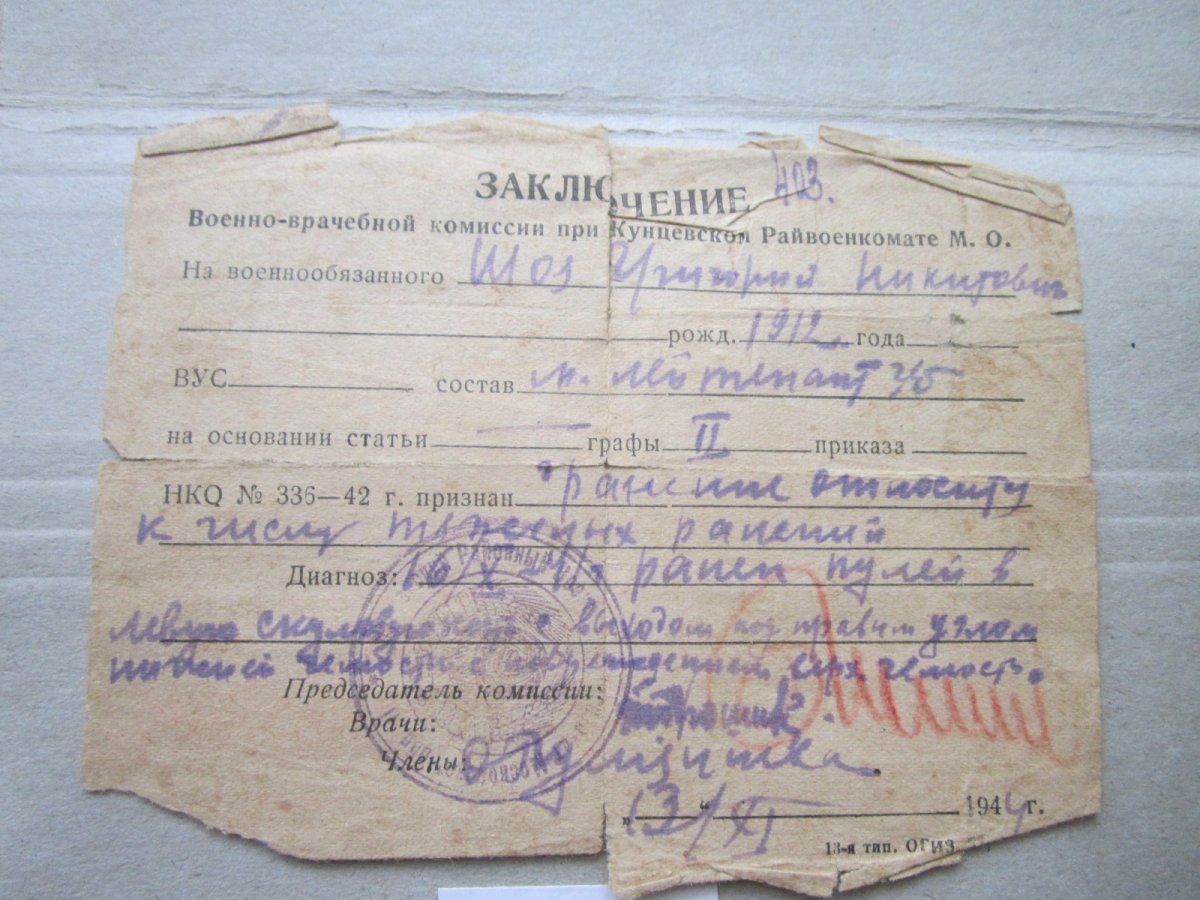 ЗАКЛЮЧЕНИЕ 403.
Военно-врачебной комиссии при Кунцевском Райвоенкомате М. О.
На военнообязанного Шоз Григорий Никитович
рожд. 1912 года
ВУС состав м. лейтенант
на основании статьи — графы II приказа
НКО № 336—42 г. признан ранение относиту
к числу тяжелых ранений
Диагноз: 16/X ранен пулей в
левую скуловую с выходом под правым углом
нижней челюсти с повреждением верх. челюсть.
Председатель комиссии:
Врачи:
Члены:
„13/XI“ 1944 г.
13-я тип. ОГИЗ